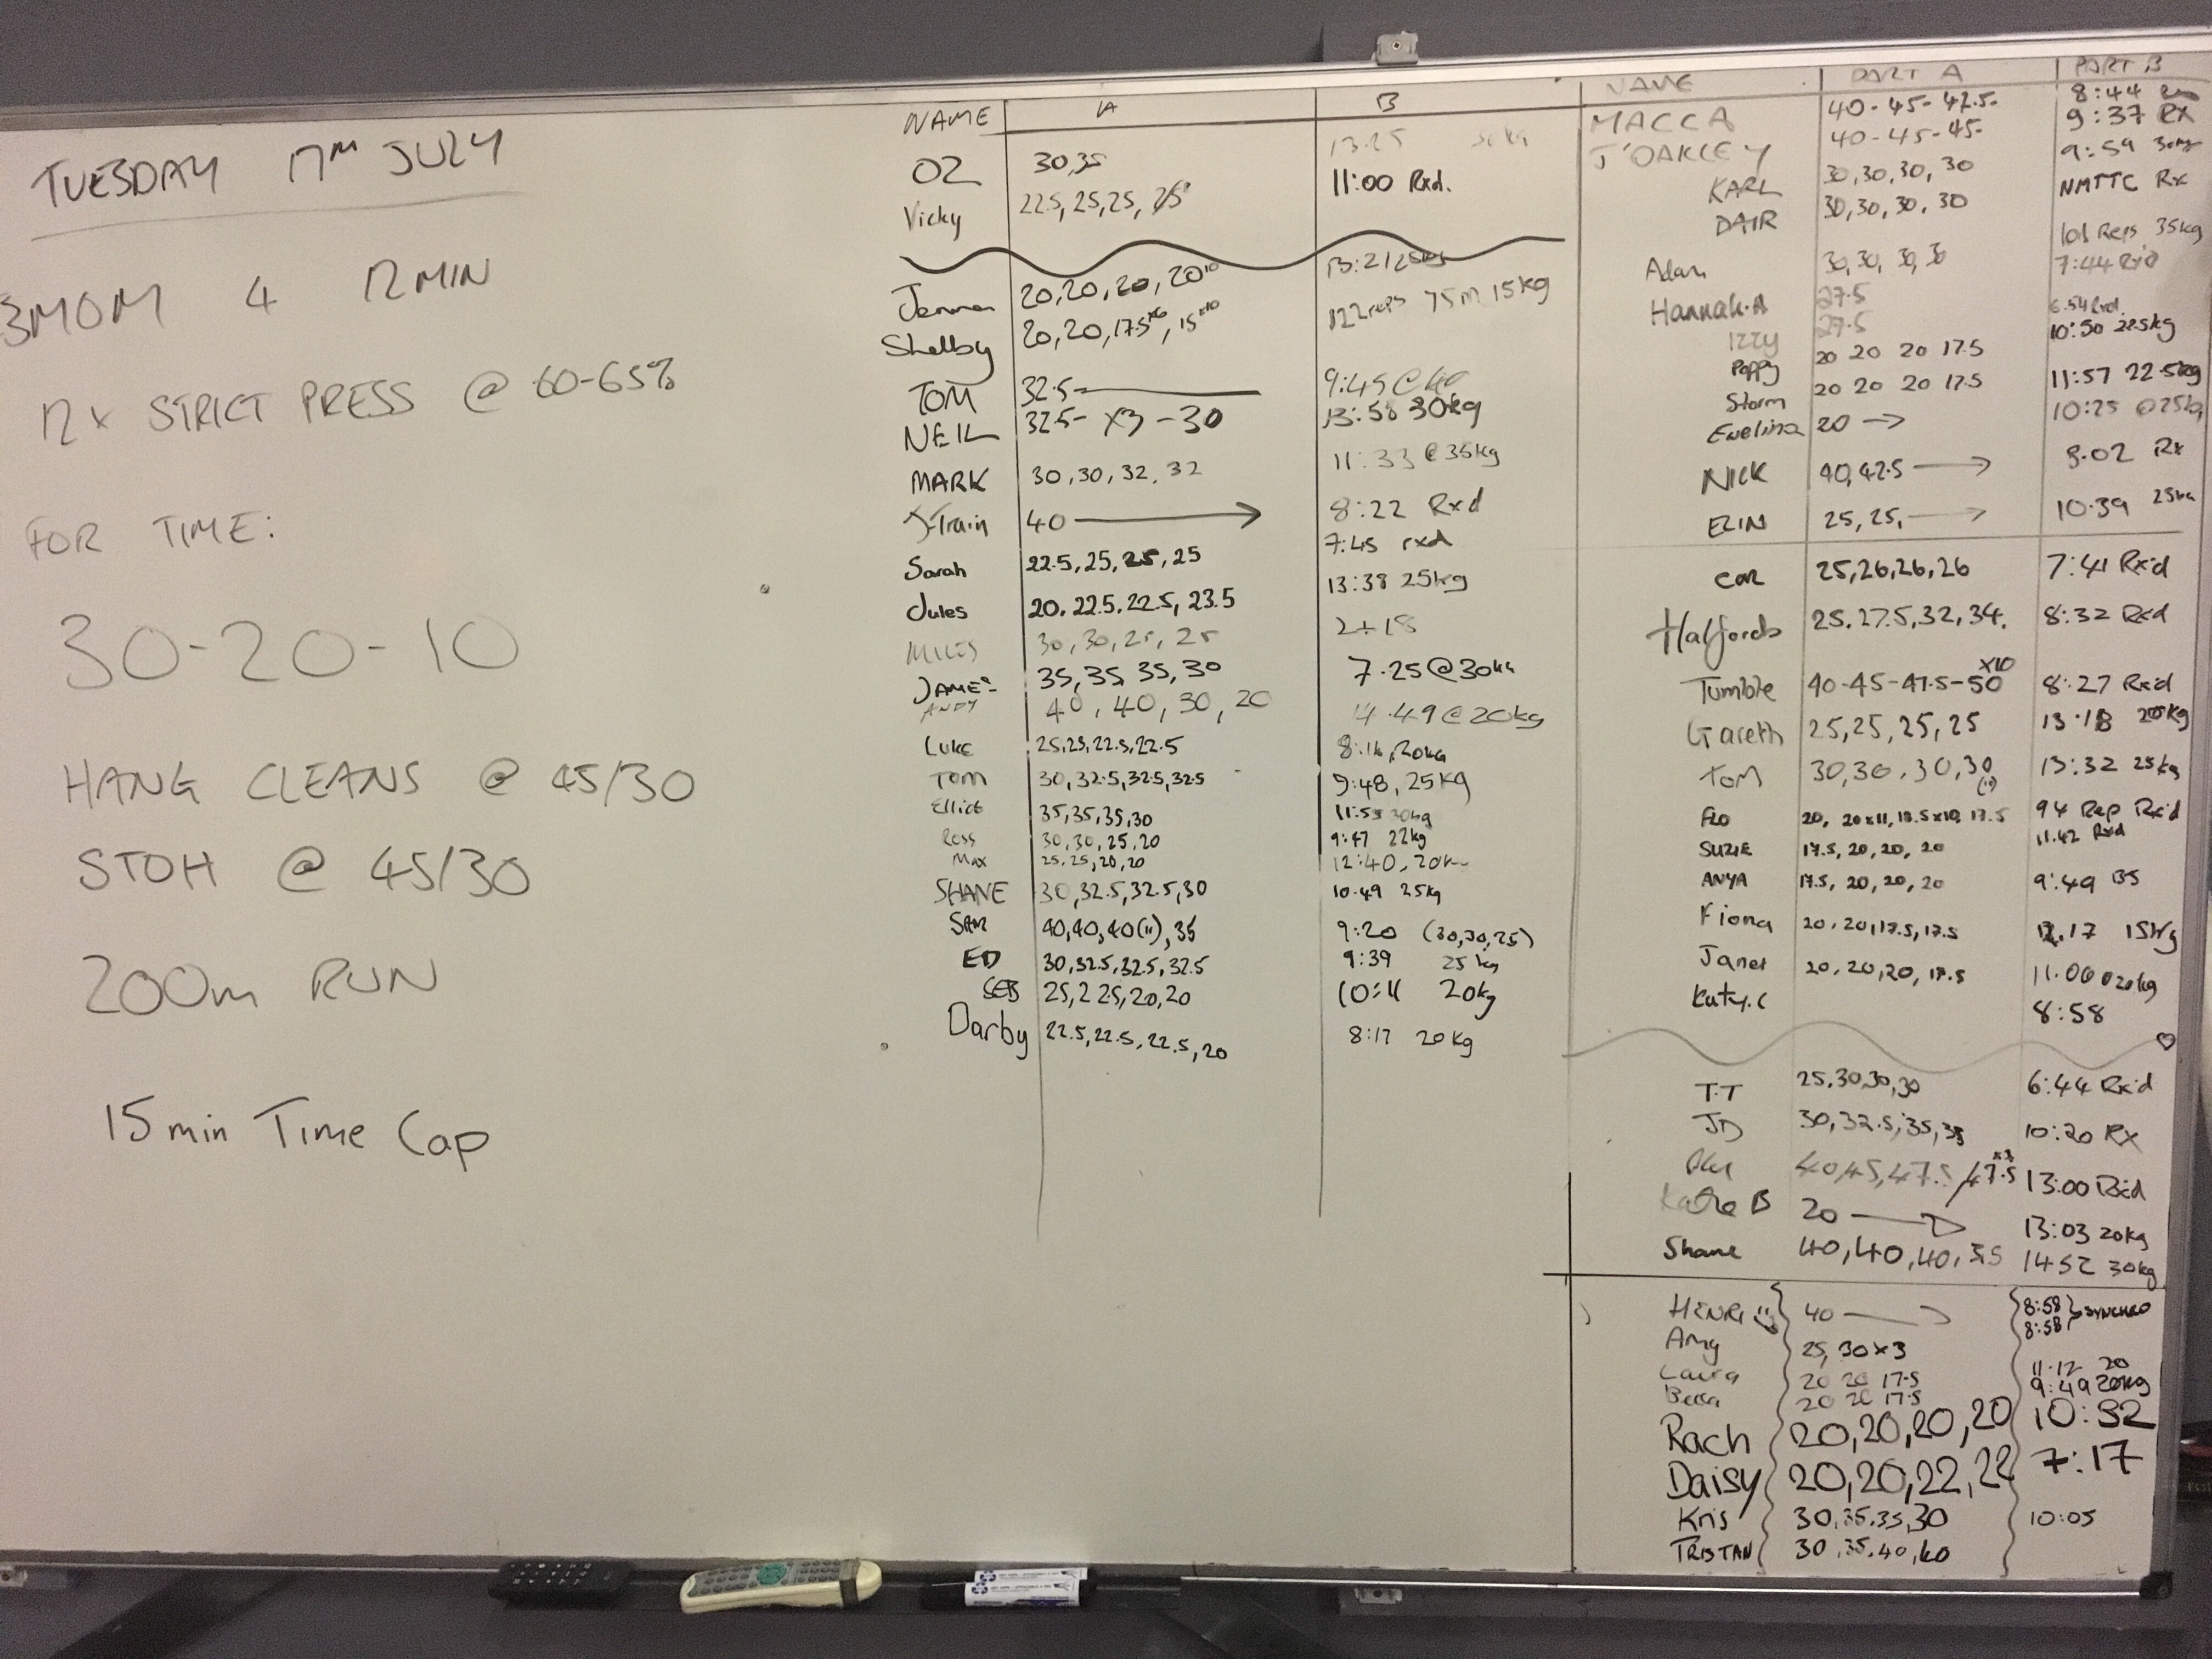 TUESDAY 17TH JULY
3MOM 4 12 MIN
12 x STRICT PRESS @ 60-65%
FOR TIME:
30-20-10
HANG CLEANS @ 45/30
STOH @ 45/30
200m RUN
15 min Time Cap
NAME A B
OZ 30,35 13:25
Vicky 22.5, 25, 25, 11:00 Rxd.
Jenna 20,20,20,20 x10 13:21
Shelby 20,20,17.5 x6, 15 x10 122 reps 75m 15kg
TOM 32.5 9:45 @ 40
NEIL 32.5- x3 -30 13:58 30kg
MARK 30,30,32,32 11:33 @35kg
J-Train 40 → 8:22 Rxd
Sarah 22.5,25,25,25 7:45 rxd
Jules 20,22.5,22.5,23.5 13:38 25kg
MILES 30,30,25,25 2+18
JAMES 35,35,35,30 7.25@30kg
ANDY 40,40,30,20 14.49@20kg
Luke 25,25,22.5,22.5 8:14, 20kg
Tom 30,32.5,32.5,32.5 9:48, 25kg
Elliot 35,35,35,30 11:55 30kg
Ross 30,30,25,20 9:47 22kg
Max 25,25,20,20 12:40, 20
SHANE 30,32.5,32.5,30 10.49 25kg
SAM 40,40,40(11),35 9:20 (30,30,25)
ED 30,32.5,32.5,32.5 9:39 25kg
SEB 25,2 25,20,20 10:11 20kg
Darby 22.5,22.5,22.5,20 8:17 20kg
NAME PART A PART B
MACCA 40-45-42.5- 8:44
J'OAKLEY 40-45-45- 9:37 Rx
KARL 30,30,30,30 9:59
DAIR 30,30,30,30 NMTTC Rx
Adam 30,30,30,30 101 Reps 35kg
Hannah.A 27.5 7:44 Rxd
Izzy 27.5 6.54 Rxd.
Poppy 20 20 20 17.5 10:50 22.5kg
Storm 20 20 20 17.5 11:57 22.5kg
Ewelina 20 → 10:25 @25kg
NICK 40,42.5 → Rx
ELIN 25,25, → 10.39 25kg
COR 25,26,26,26 7:41 Rx'd
Halfords 25.27.5,32,34. 8:32 Rxd
Tumble 40-45-47.5-50 x10 8:27 Rx'd
Gareth 25,25,25,25 13:18
Tom 30,30,30,30 13:32 25kg
FLO 20, 20x11, 17.5 94 Rep Rx'd
SUZIE 17.5, 20, 20, 20 11.42 Rxd
ANYA 17.5, 20, 20, 20 9:49
Fiona 20,20,17.5,17.5 12.17 15kg
Janet 20,20,20,17.5 11.00 @20kg
Katy.C 8:58
T.T 25,30,30,30 6:44 Rx'd
JD 30,32.5,35,35 10:20 RX
40,45,47.5,47.5 x3 13:00 Rxd
Katie B 20 → 13:03 20kg
Shane 40,40,40,35 14:52 30kg
HENRI 40 → 8:58 } SYNCHRO
Amy 25,30x3 8:58
Laura 20 20 17.5 11:12 20
Becca 20 20 17.5 9:49 20kg
Rach 20,20,20,20 10:32
Daisy 20,20,22,22 7:17
Kris 30,35,35,30 10:05
TRISTAN 30,35,40,40